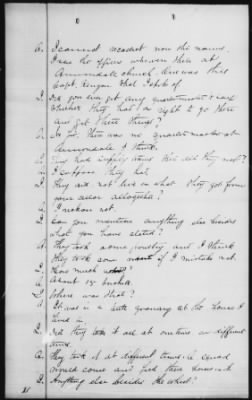 A. I cannot recollect now the names.
I saw the officers wherever there at
Annandale church. One was this
Capt. Kenyon that I spoke of.
Q. Did you ever get any quartermaster to say
whether they had a right to go there
and get these things?
A. No sir. There was no quartermaster at
Annandale I think.
Q. They had supply trains there did they not?
A. I suppose they had.
Q. They did not live on what they got from
your place altogether?
A. I reckon not.
Q. Can you mention anything else besides
what you have stated?
A. They took some poultry and I think
they took some if I mistake not.
Q. How much
A. About 15 bushels.
Q. Where was that?
A. It was in a little granary at the house I
lived in.
Q. Did they take it all at one time or different
times.
A. They took it at different times. A squad
would come and feed their horses.
Q. Anything else besides the wheat?